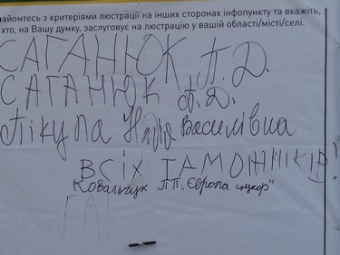 знайомтесь з критеріями люстрації на інших сторонах інфопункту та вкажіть,
хто, на Вашу думку, заслуговує на люстрацію у вашій області/місті/селі.
САГАНЮК П. Д.
САГАНЮК П. Д.
Пікула Надія Василівна
ВСІХ ТАМОЖНІКІВ!
Ковальчук ПП „Європа цукор"